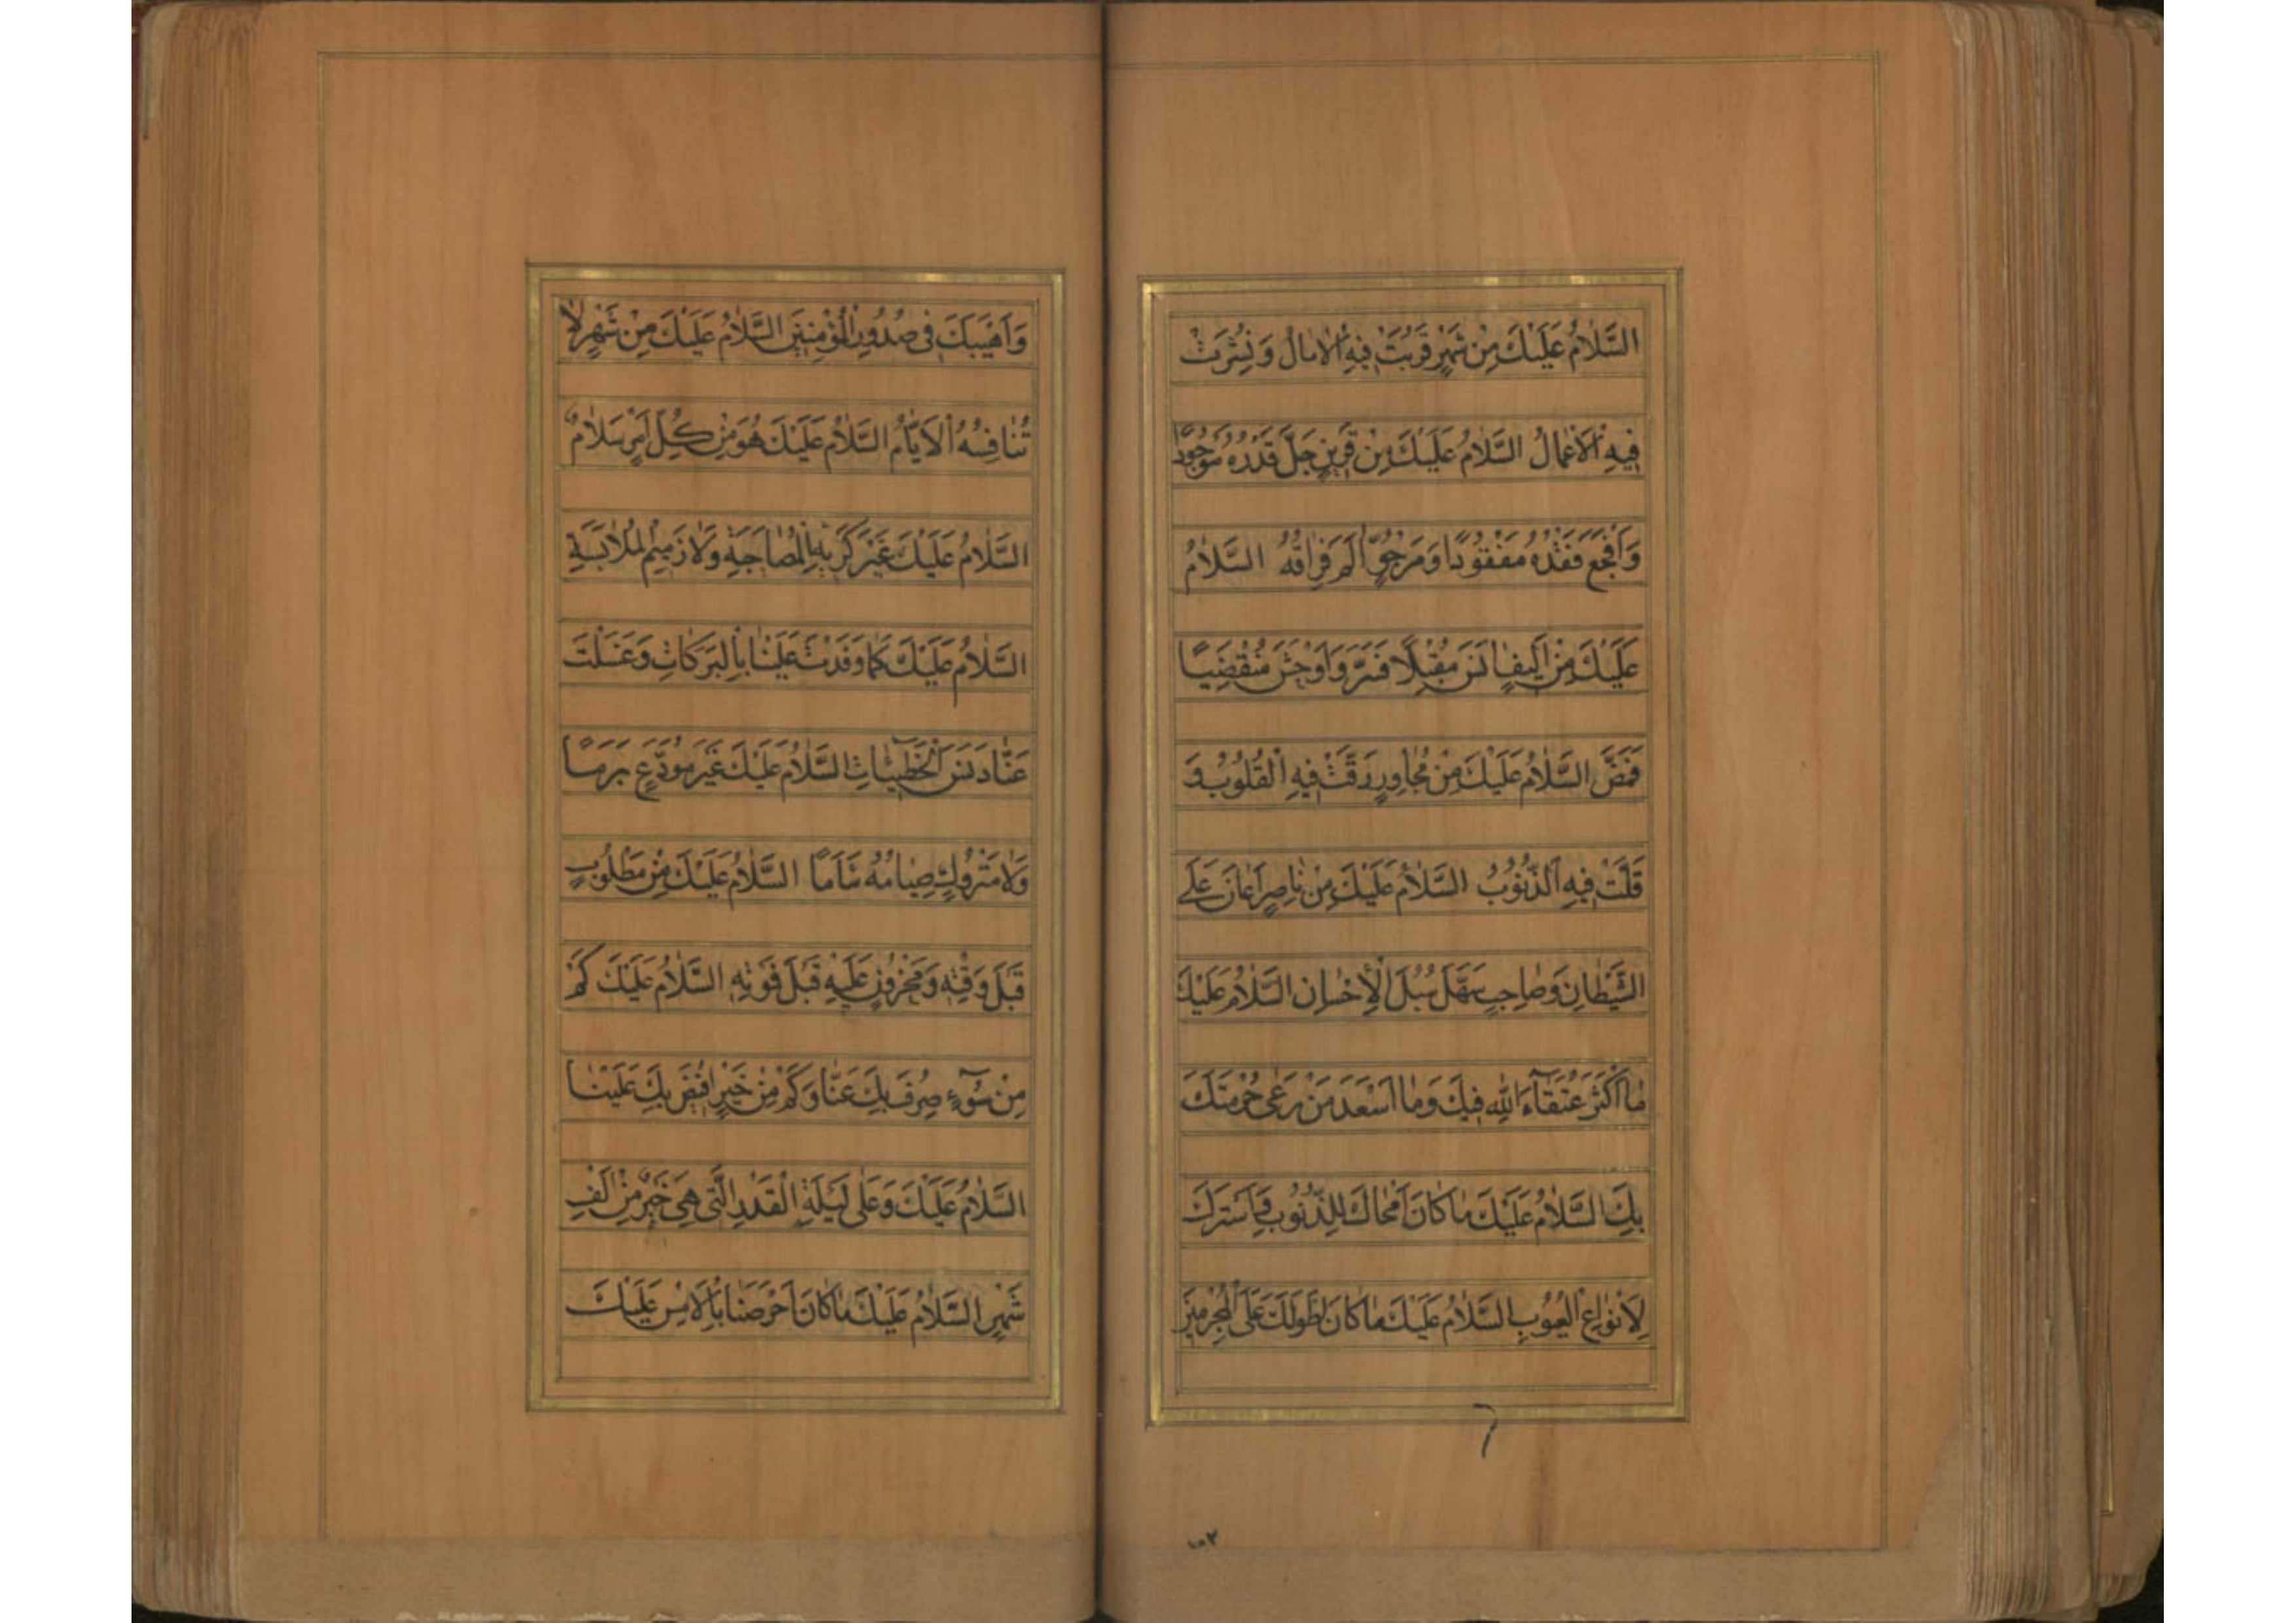 السَّلَامُ عَلَيْكَ مِنْ شَهْرٍ قَرُبَتْ فِيهِ الْاٰمَالُ وَ نُشِرَتْ
فِيهِ الْاَعْمَالُ السَّلَامُ عَلَيْكَ مِنْ قَرِينٍ جَلَّ قَدْرُهُ مَوْجُودًا
وَاَفْجَعَ فَقْدُهُ مَفْقُودًا وَ مَرْجُوٍّ اٰلَمَ فِرَاقُهُ السَّلَامُ
عَلَيْكَ مِنْ اَلِيفٍ اٰنَسَ مُقْبِلًا فَسَرَّ وَ اَوْحَشَ مُنْقَضِيًا
فَمَضَّ السَّلَامُ عَلَيْكَ مِنْ مُجَاوِرٍ رَقَّتْ فِيهِ الْقُلُوبُ وَ
قَلَّتْ فِيهِ الذُّنُوبُ السَّلَامُ عَلَيْكَ مِنْ نَاصِرٍ اَعَانَ عَلَى
الشَّيْطَانِ وَ صَاحِبٍ سَهَّلَ سُبُلَ الْاِحْسَانِ السَّلَامُ عَلَيْكَ
مَا اَكْثَرَ عُتَقَآءَ اللّٰهِ فِيكَ وَ مَا اَسْعَدَ مَنْ رَعٰى حُرْمَتَكَ
بِكَ السَّلَامُ عَلَيْكَ مَا كَانَ اَمْحَاكَ لِلذُّنُوبِ وَ اَسْتَرَكَ
لِاَنْوَاعِ الْعُيُوبِ السَّلَامُ عَلَيْكَ مَا كَانَ اَطْوَلَكَ عَلَى الْمُجْرِمِينَ
١٥٢
وَ اَهْيَبَكَ فِي صُدُورِ الْمُؤْمِنِينَ السَّلَامُ عَلَيْكَ مِنْ شَهْرٍ لَا
تُنَافِسُهُ الْاَيَّامُ السَّلَامُ عَلَيْكَ هُوَ مِنْ كُلِّ اَمْرٍ سَلَامٌ
السَّلَامُ عَلَيْكَ غَيْرَ كَرِيهِ الْمُصَاحَبَةِ وَلَا ذَمِيمِ الْمُلَابَسَةِ
السَّلَامُ عَلَيْكَ كَمَا وَفَدْتَ عَلَيْنَا بِالْبَرَكَاتِ وَ غَسَلْتَ
عَنَّا دَنَسَ الْخَطِيئَاتِ السَّلَامُ عَلَيْكَ غَيْرَ مُوَدَّعٍ بَرَمًا
وَلَا مَتْرُوكٍ صِيَامُهُ سَأَمًا السَّلَامُ عَلَيْكَ مِنْ مَطْلُوبٍ
قَبْلَ وَقْتِهِ وَ مَحْزُونٍ عَلَيْهِ قَبْلَ فَوْتِهِ السَّلَامُ عَلَيْكَ كَمْ
مِنْ سُوٓءٍ صُرِفَ بِكَ عَنَّا وَ كَمْ مِنْ خَيْرٍ اُفِيضَ بِكَ عَلَيْنَا
السَّلَامُ عَلَيْكَ وَ عَلٰى لَيْلَةِ الْقَدْرِ الَّتِي هِيَ خَيْرٌ مِنْ اَلْفِ
شَهْرٍ السَّلَامُ عَلَيْكَ مَا كَانَ اَحْرَصَنَا بِالْاَمْسِ عَلَيْكَ